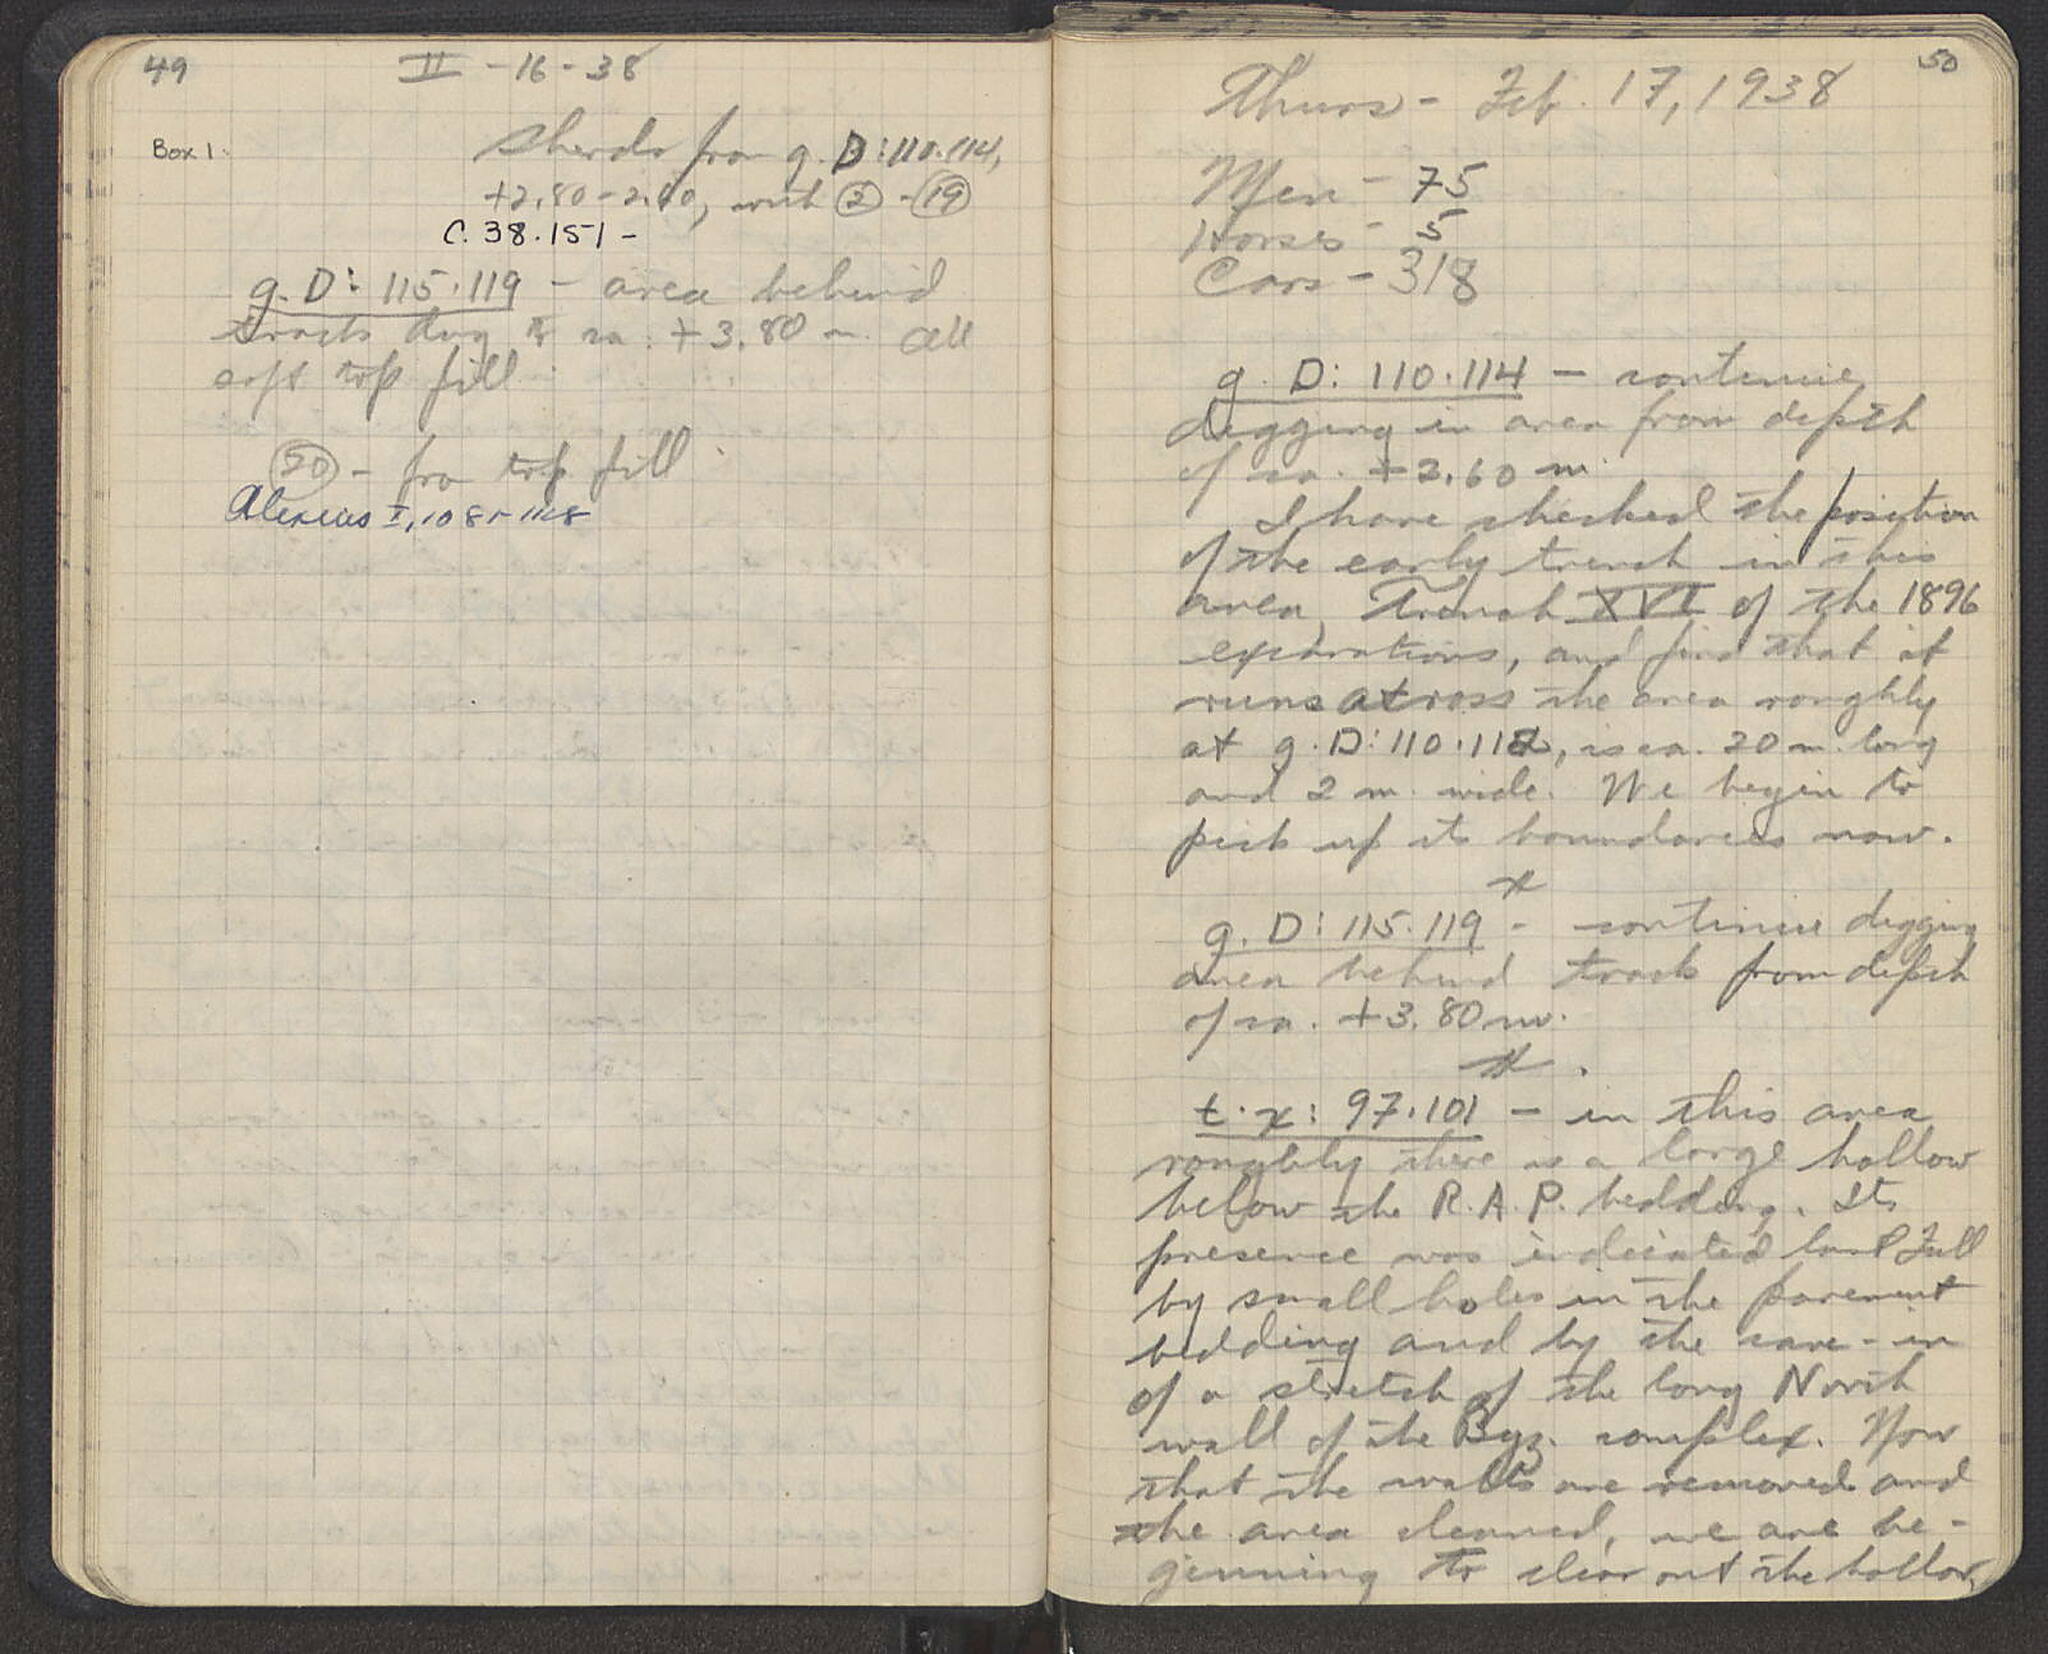 49
II - 16 - 38
Box 1.
Sherds from g. D: 110.114,
+2.80 - 2.60, with ② - ⑲
C. 38.151 -
g. D: 115.119 - area behind
tracks dug to ca. + 3.80 m. All
soft top fill.
㊿ - fro top fill.
Alexius I, 1081-1118
50
Thurs - Feb. 17, 1938
Men - 75
Horses - 5
Cars - 318
g. D: 110.114 - continue
digging in area from depth
of ca. + 2.60 m.
I have checked the position
of the early trench in this
area, Trench XVI of the 1896
excavations, and find that it
runs across the area roughly
at g. D: 110.112, is ca. 20 m. long
and 2 m. wide. We begin to
pick up its boundaries now.
x
g. D: 115.119 - continue digging
area behind track from depth
of ca. + 3.80 m.
x
t.x: 97.101 - in this area
roughly there is a large hollow
below the R.A.P. bedding. Its
presence was indicated last Fall
by small holes in the pavement
bedding and by the cave-in
of a stretch of the long North
wall of the Byz. complex. Now
that the walls are removed and
the area cleaned, we are be-
ginning to clear out the hollow,